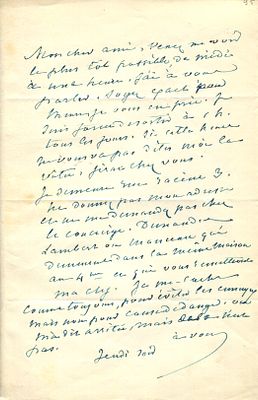 Mon cher ami, venez me voir
le plus tôt possible, de midi
à une heure. J'ai à vous
parler. Soyez exact pour
l'heure je vous en prie. Je
suis forcée de sortir à 1 h.
tous les jours. Si cette heure
ne vous va pas dites moi la
vôtre, j'irai chez vous.
Je demeure rue Racine 3.
Ne donnez pas mon adresse
et ne me demandez pas chez
le concierge. Demandez
Lambert ou Manceau qui
demeurent dans la même maison
au 4me et qui vous
ma clef. Je me cache
comme toujours, pour éviter les ennuyeux
mais non pour cause de danger, on
m'a dit arrêtée, mais cela n'est
pas.
à vous
Jeudi soir